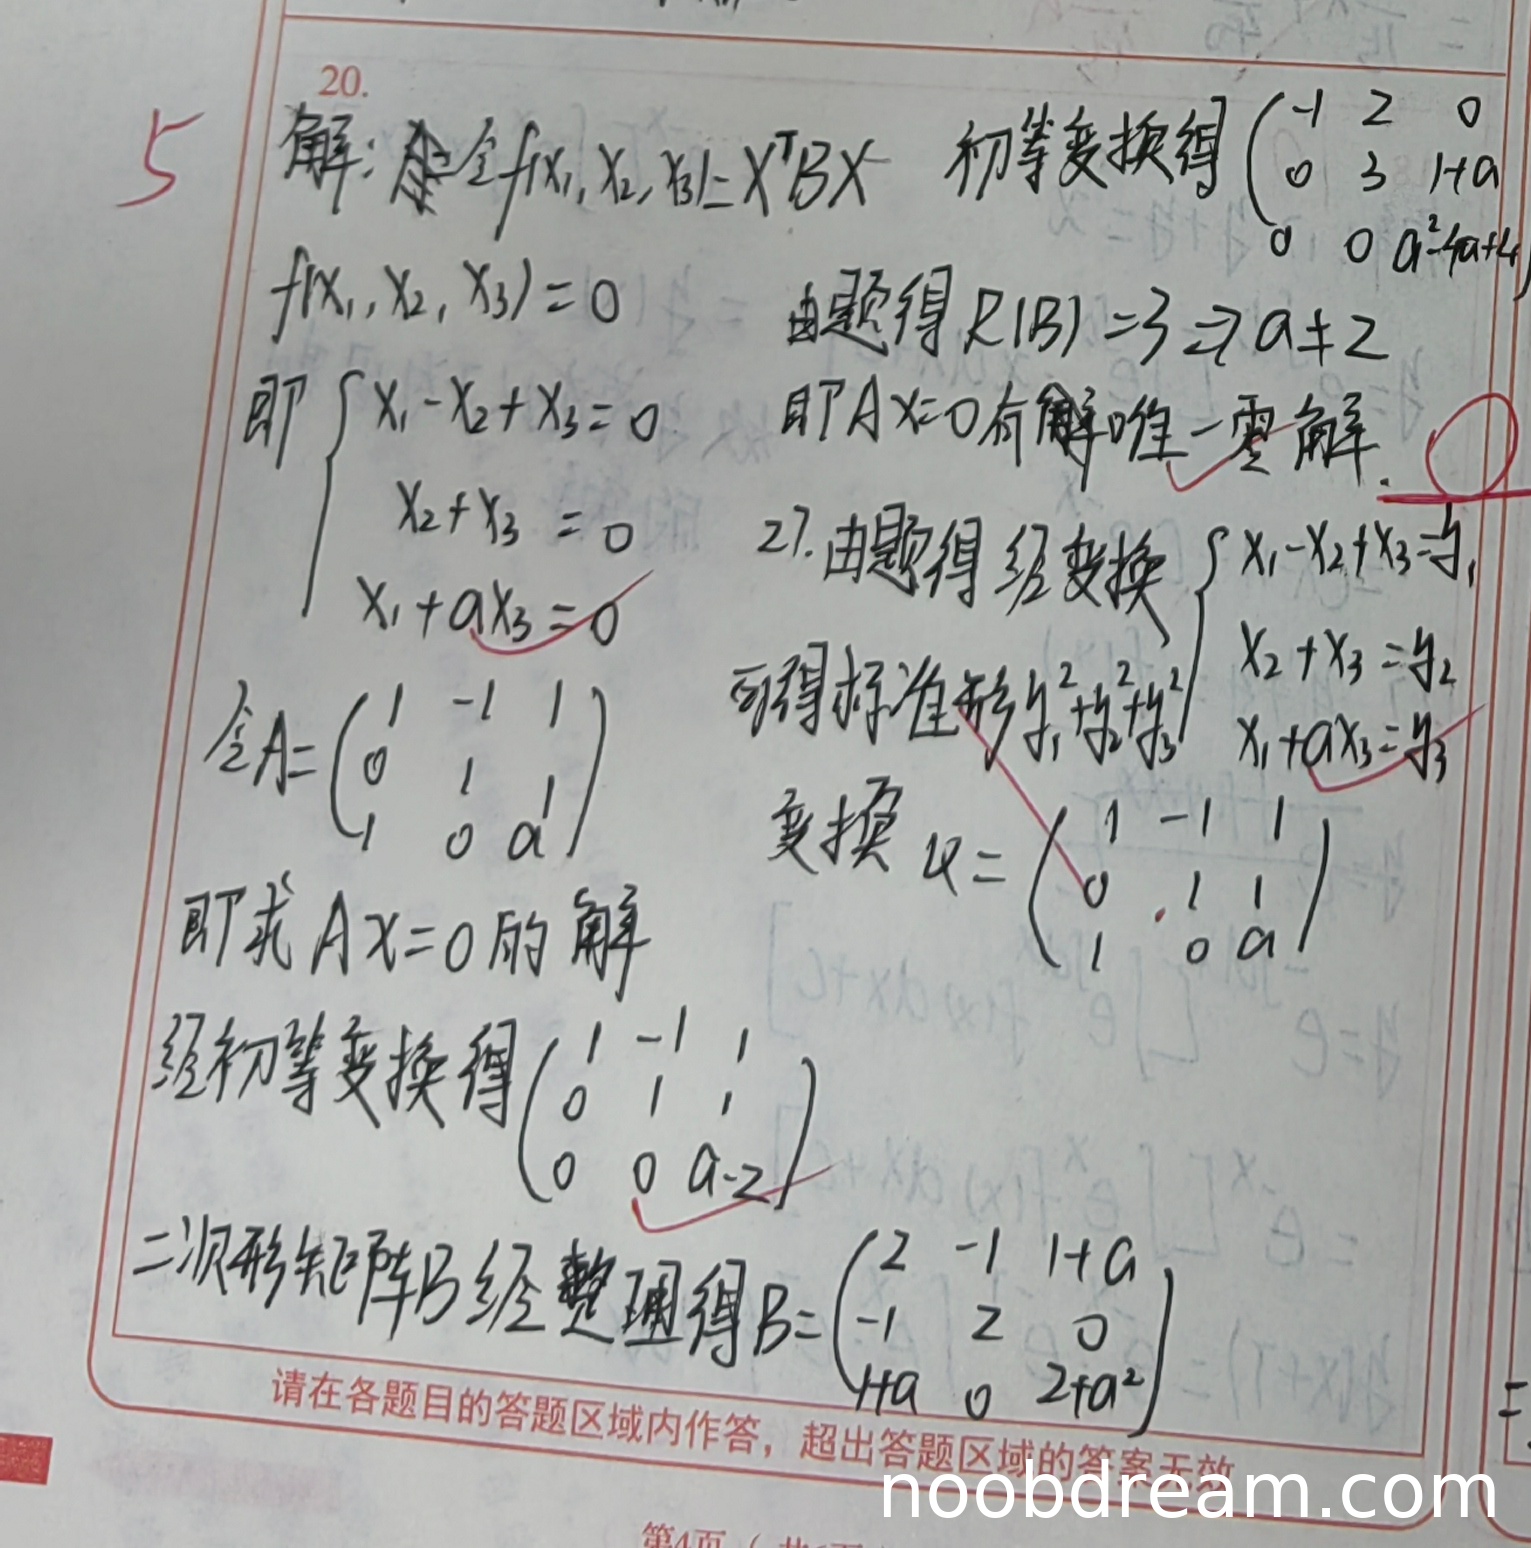 20.
5
解:令f(x₁,x₂,x₃)=XᵀBX
f(x₁,x₂,x₃)=0
即{x₁-x₂+x₃=0
x₂+x₃=0
x₁+ax₃=0
令A=(1 -1 1
0 1 1
1 0 a)
即求Ax=0的解
经初等变换得(1 -1 1
0 1 1
0 0 a-2)
二次形矩阵B经整理得B=(2 -1 1+a
-1 2 0
1+a 0 2+a²)
初等变换得(-1 2 0
0 3 1+a
0 0 a²-4a+4)
由题得R(B)=3⇒a≠2
即Ax=0有唯一零解.
27.由题得经变换{x₁-x₂+x₃=y₁
x₂+x₃=y₂
x₁+ax₃=y₃
可得标准形y₁²+y₂²+y₃²
变换φ=(1 -1 1
0 1 1
1 0 a)
请在各题目的答题区域内作答，超出答题区域的答案无效
noobdream.com